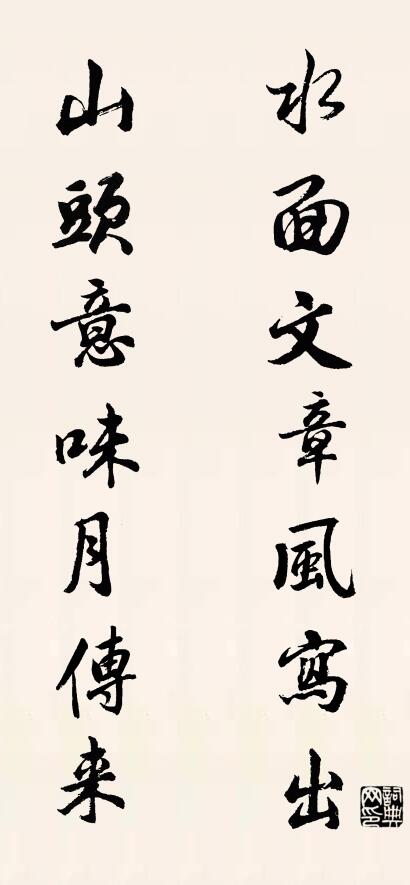 水面文章風寫出
山頭意味月傳来
詞典網印